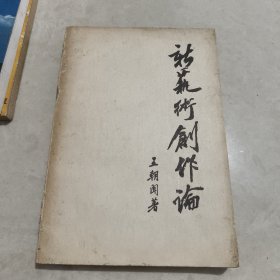 新藝術創作論
王朝聞著